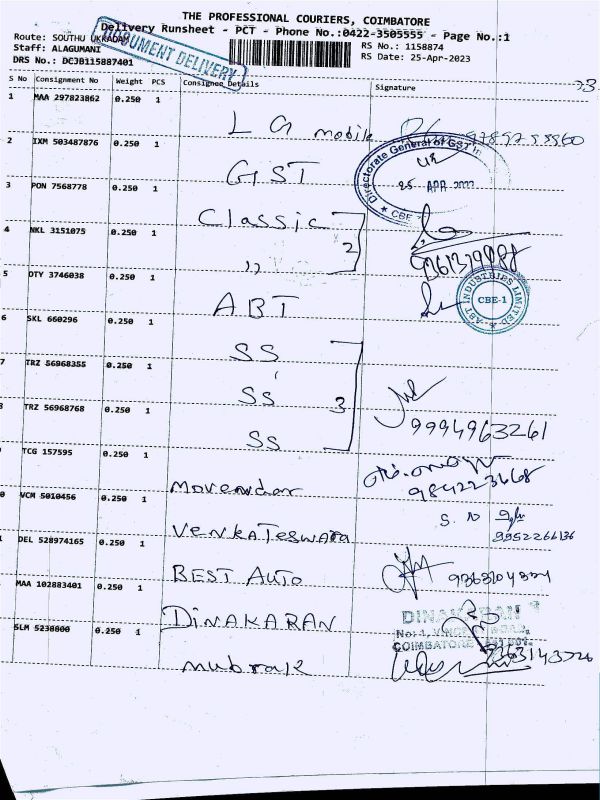 THE PROFESSIONAL COURIERS, COIMBATORE
Delivery Runsheet - PCT - Phone No.:0422-3505555 - Page No.:1
Route: SOUTHU UKKADAM
Staff: ALAGUMANI
DRS No.: DCJB115887401
DOCUMENT DELIVERY
RS No.: 1158874
RS Date: 25-Apr-2023
S No Consignment No Weight PCS Consignee Details Signature
1 MAA 297823862 0.250 1
LG mobile
2 IXM 503487876 0.250 1
GST
Directorate General of GST
25 APR
CBE
3 PON 7568778 0.250 1
Classic
4 NKL 3151075 0.250 1
,, 2
5 OTY 3746038 0.250 1
ABT
ABT INDUSTRIES LIMITED
CBE-1
6 SKL 660296 0.250 1
SS
7 TRZ 56968355 0.250 1
SS 3
TRZ 56968768 0.250 1
SS
9994963261
TCG 157595 0.250 1
Movendar
VCM 5010456 0.250 1
Venkateswara
S. N
9952266136
DEL 528974165 0.250 1
BEST AUTO
9363104334
MAA 102883401 0.250 1
DINAKARAN
DINAKARAN
COIMBATORE
SLM 5238800 0.250 1
mubrak